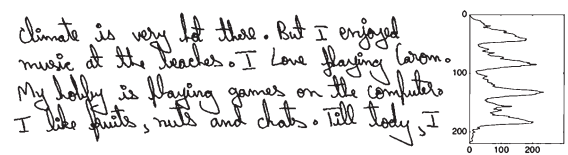 climate is very hot there. But I enjoyed
music at the beaches. I Love playing Carom.
My hobby is playing games on the computer.
I like fruits, nuts and chats. Till tody, I
0
100
200
0 100 200